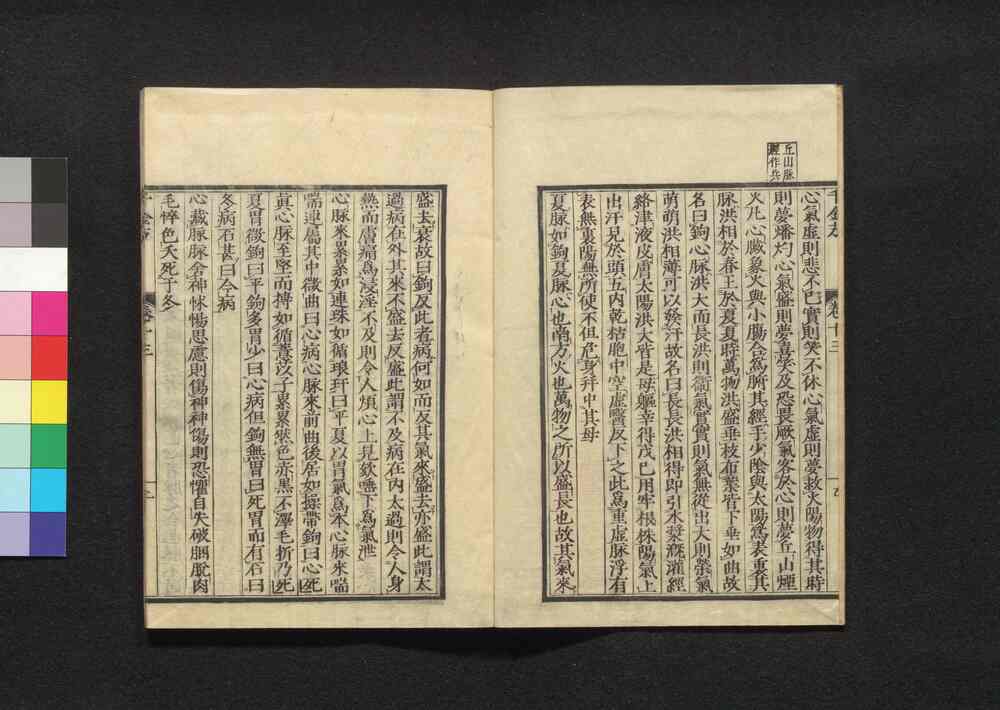 丘山脉
經作兵
心氣虛則悲不已實則笑不休心氣虛則夢救火陽物得其時
則夢燔灼心氣盛則夢喜笑及恐畏厥氣客於心則夢丘山煙
火凡心臟象火與小腸合爲腑其經手少陰與太陽爲表裏其
脉洪相於春王於夏夏時萬物洪盛垂枝布葉皆下垂如曲故
名曰鉤心脉洪大而長洪則衞氣實實則氣無從出大則榮氣
萌萌洪相薄可以發汗故名曰長長洪相得即引水漿溉灌經
絡津液皮膚太陽洪大皆是母軀幸得戊己用牢根株陽氣上
出汗見於頭五内乾枯胞中空虛醫反下之此爲重虛脉浮有
表無裏陽無所使不但危身并中其母
夏脉如鉤夏脉心也南方火也萬物之所以盛長也故其氣來
盛去衰故曰鉤反此者病何如而反其氣來盛去亦盛此謂太
過病在外其來不盛去反盛此謂不及病在内太過則令人身
熱而膚痛爲浸淫不及則令人煩心上見欬唾下爲氣泄
心脉來累累如連珠如循琅玕曰平夏以胃氣爲本心脉來喘
喘連屬其中微曲曰心病心脉來前曲後居如操帶鉤曰心死
眞心脉至堅而摶如循薏苡子累累然色赤黑不澤毛折乃死
夏胃微鉤曰平鉤多胃少曰心病但鉤無胃曰死胃而有石曰
冬病石甚曰今病
心藏脉脉舍神怵惕思慮則傷神神傷則恐懼自失破䐃脫肉
毛悴色夭死于冬
卷十三